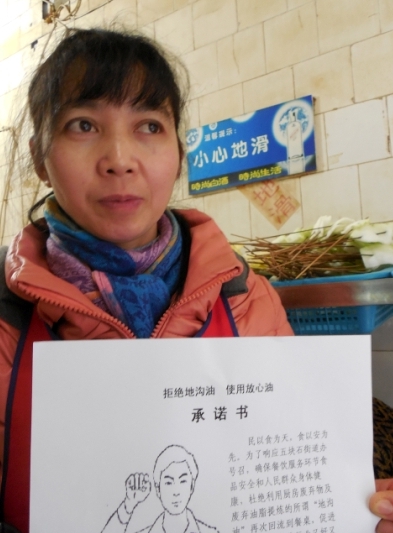 温馨提示：
小心地滑
時尚白酒 時尚生活
拒绝地沟油 使用放心油
承诺书
民以食为天，食以安为
先。为了响应五块石街道办
号召，确保餐饮服务环节食
品安全和人民群众身体健
康，杜绝利用厨房废弃物及
废弃油脂提炼的所谓“地沟
油”再次回流到餐桌，促进